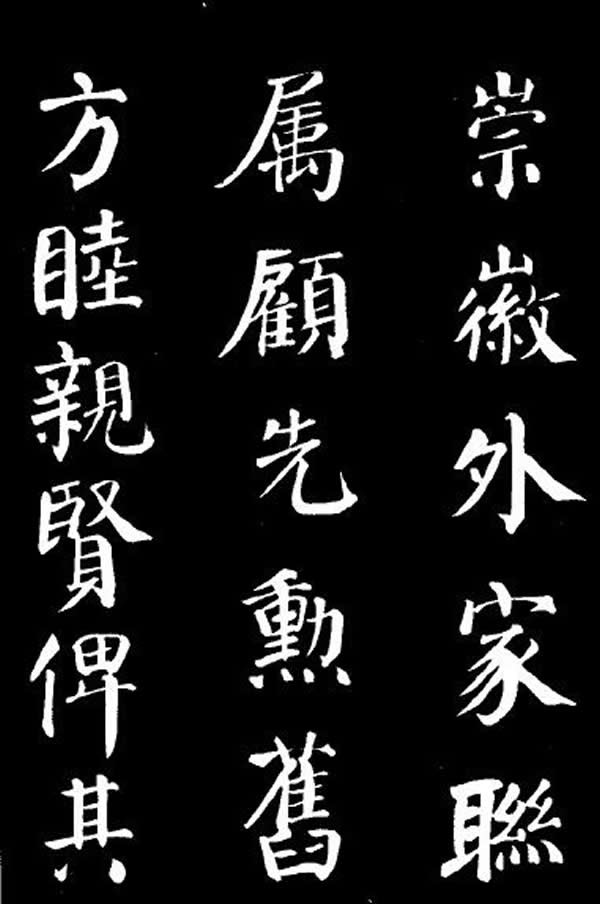 崇徽外家聯
属顧先勲舊
方睦親賢俾其